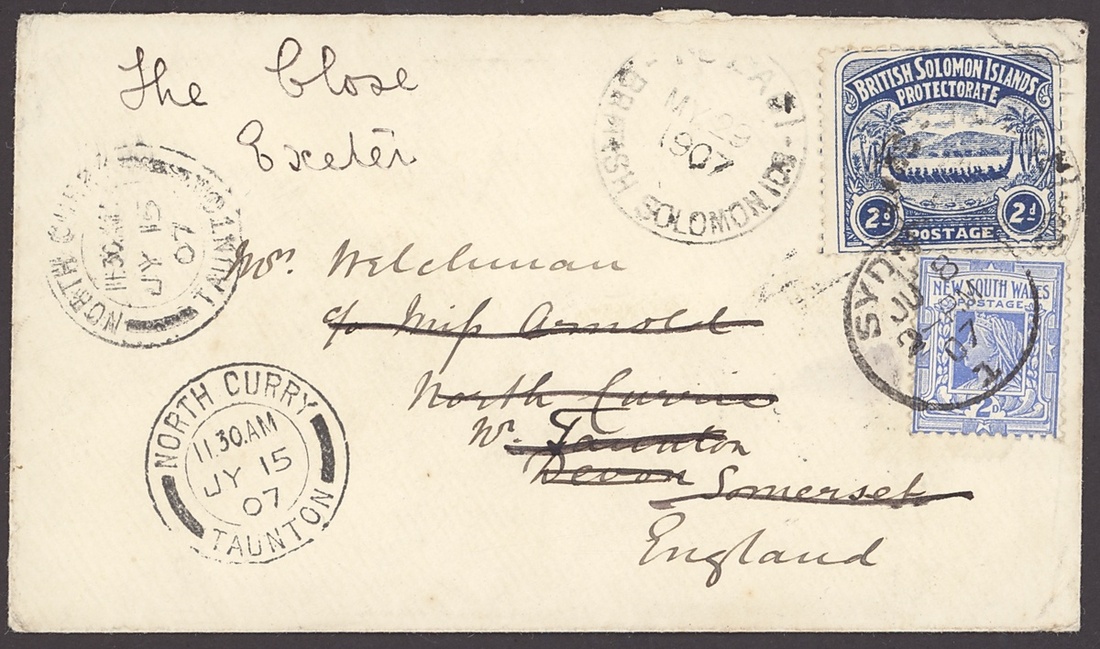 The Close
Exeter
BRITISH SOLOMON IDS
MY 29
1907
BRITISH SOLOMON ISLANDS
PROTECTORATE
2d 2d
POSTAGE
SYDNEY
JU 8
07
1
NEW SOUTH WALES
POSTAGE
2D
NORTH CURRY
11.30.AM
JY 15
07
TAUNTON
Welchman
c/o Miss Arnold
North Currie
Nr. Taunton
Devon Somerset
England
NORTH CURRY
11.30.AM
JY 15
07
TAUNTON